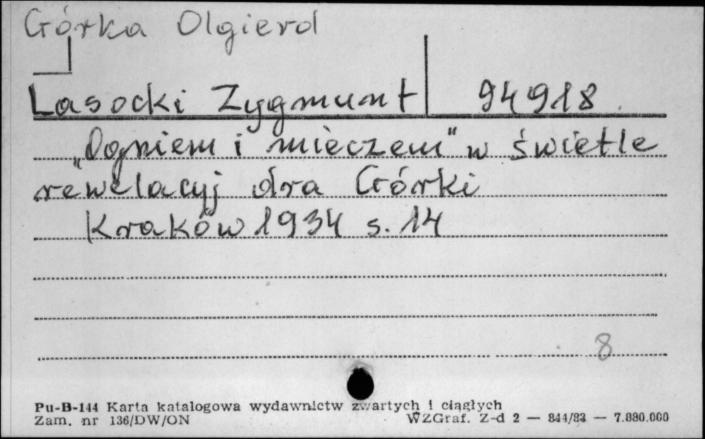 Górka Olgierd
Lasocki Zygmunt 94918
"Ogniem i mieczem" w świetle
rewelacyj dra Górki
Kraków 1934 s. 14
8
Pu-B-144 Karta katalogowa wydawnictw zwartych i ciągłych
Zam. nr 136/DW/ON WZGraf. Z-d 2 — 844/83 — 7.880.000